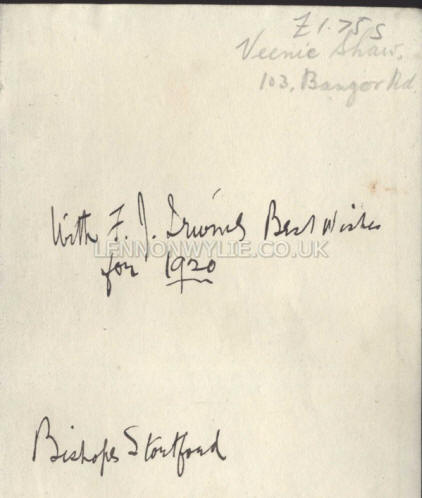 £1.75 S
Veenie Shaw.
103, Bangor Rd.
With F. J. Irwin's Best Wishes
LENNONWYLIE.CO.UK
for 1920
Bishops Stortford